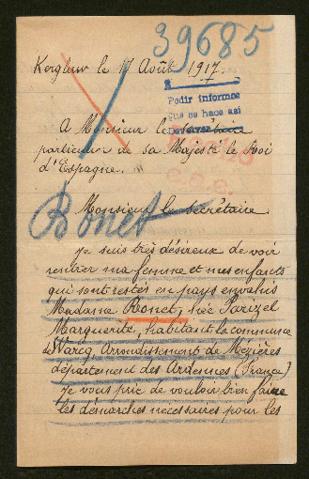 39685
Kergueur le 17 Août 1917.
Pedir informes
que se hace así
A Monsieur le secrétaire
particulier de sa Majesté le Roi
d'Espagne.
Bonet
Monsieur le secrétaire
je suis très désireux de voir
rentrer ma femme et mes enfants
qui sont restés en pays envahis
Madame Bonet, née Parizel
Marguerite, habitant la commune
de Warcq, Arrondissement de Mézières
département des Ardennes (France)
je vous prie de vouloir bien faire
les démarches nécessaires pour les